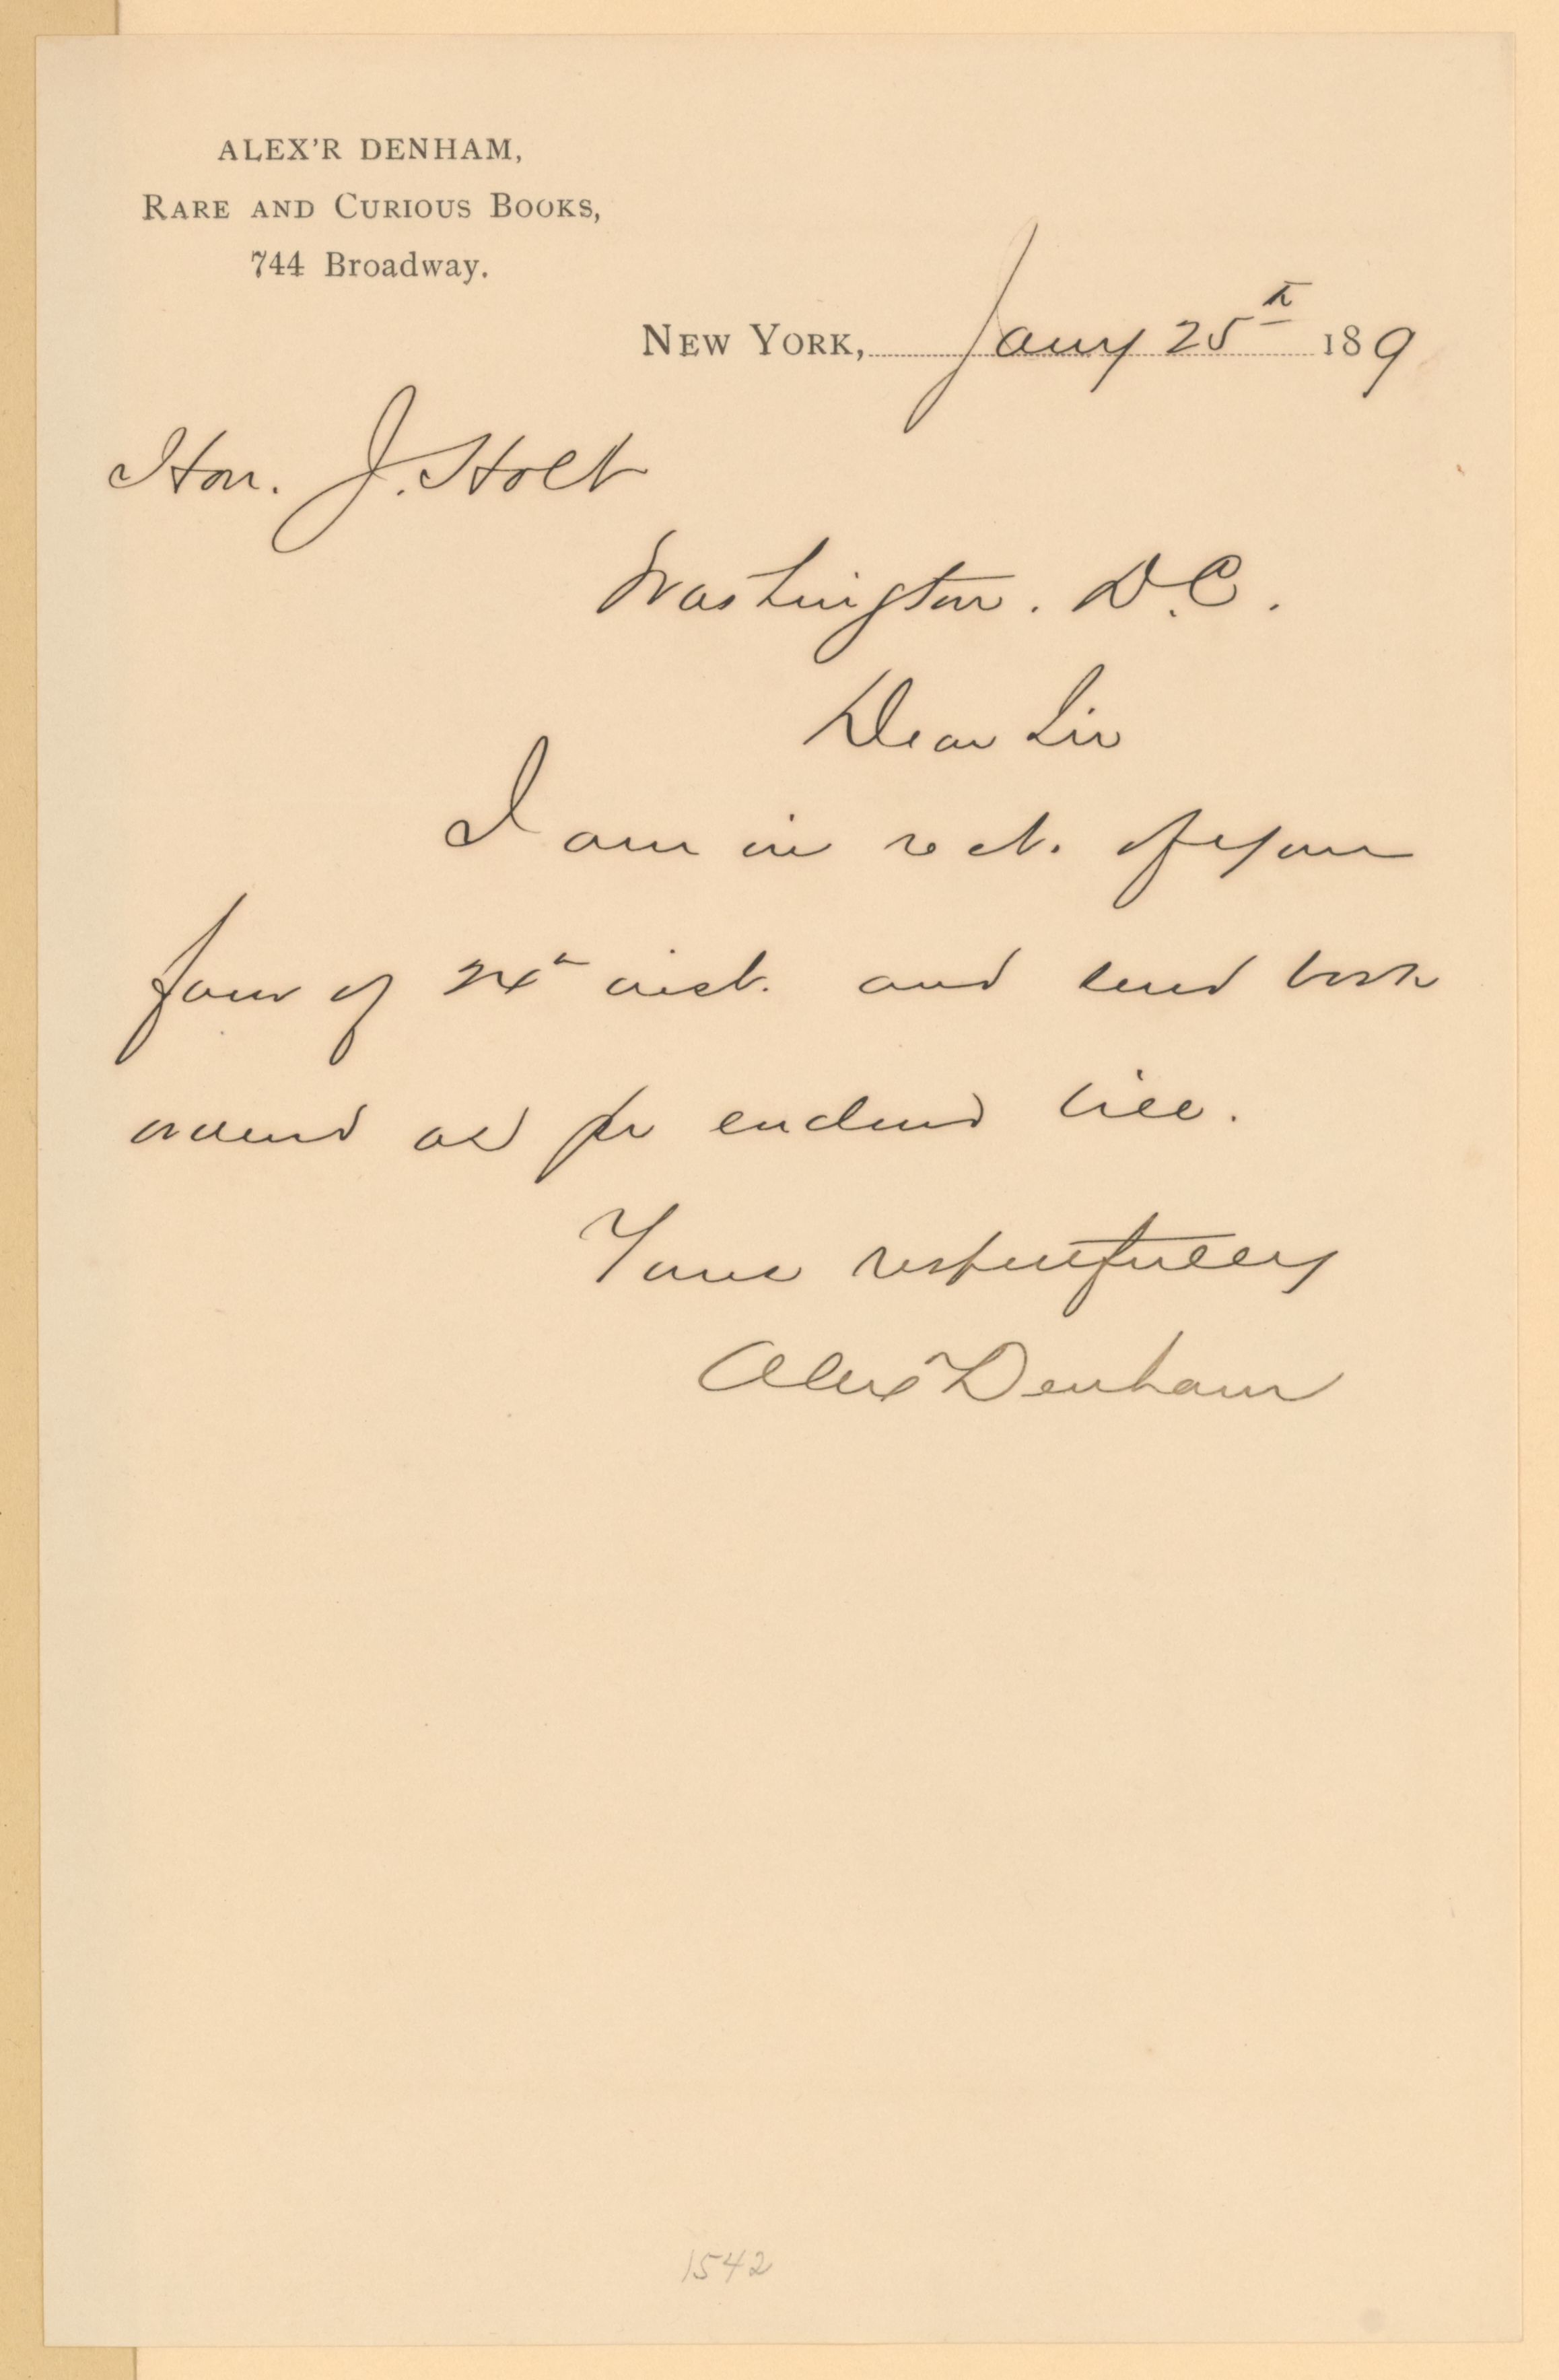 ALEX'R DENHAM,
RARE AND CURIOUS BOOKS,
744 Broadway.
NEW YORK, Jany 25th 189
Hon. J. Holt
Washington. D.C.
Dear Sir
I am in rect. of your
favor of 24th inst. and send book
ordered as per enclosed bill.
Yours respectfully
Alexr Denham
1542